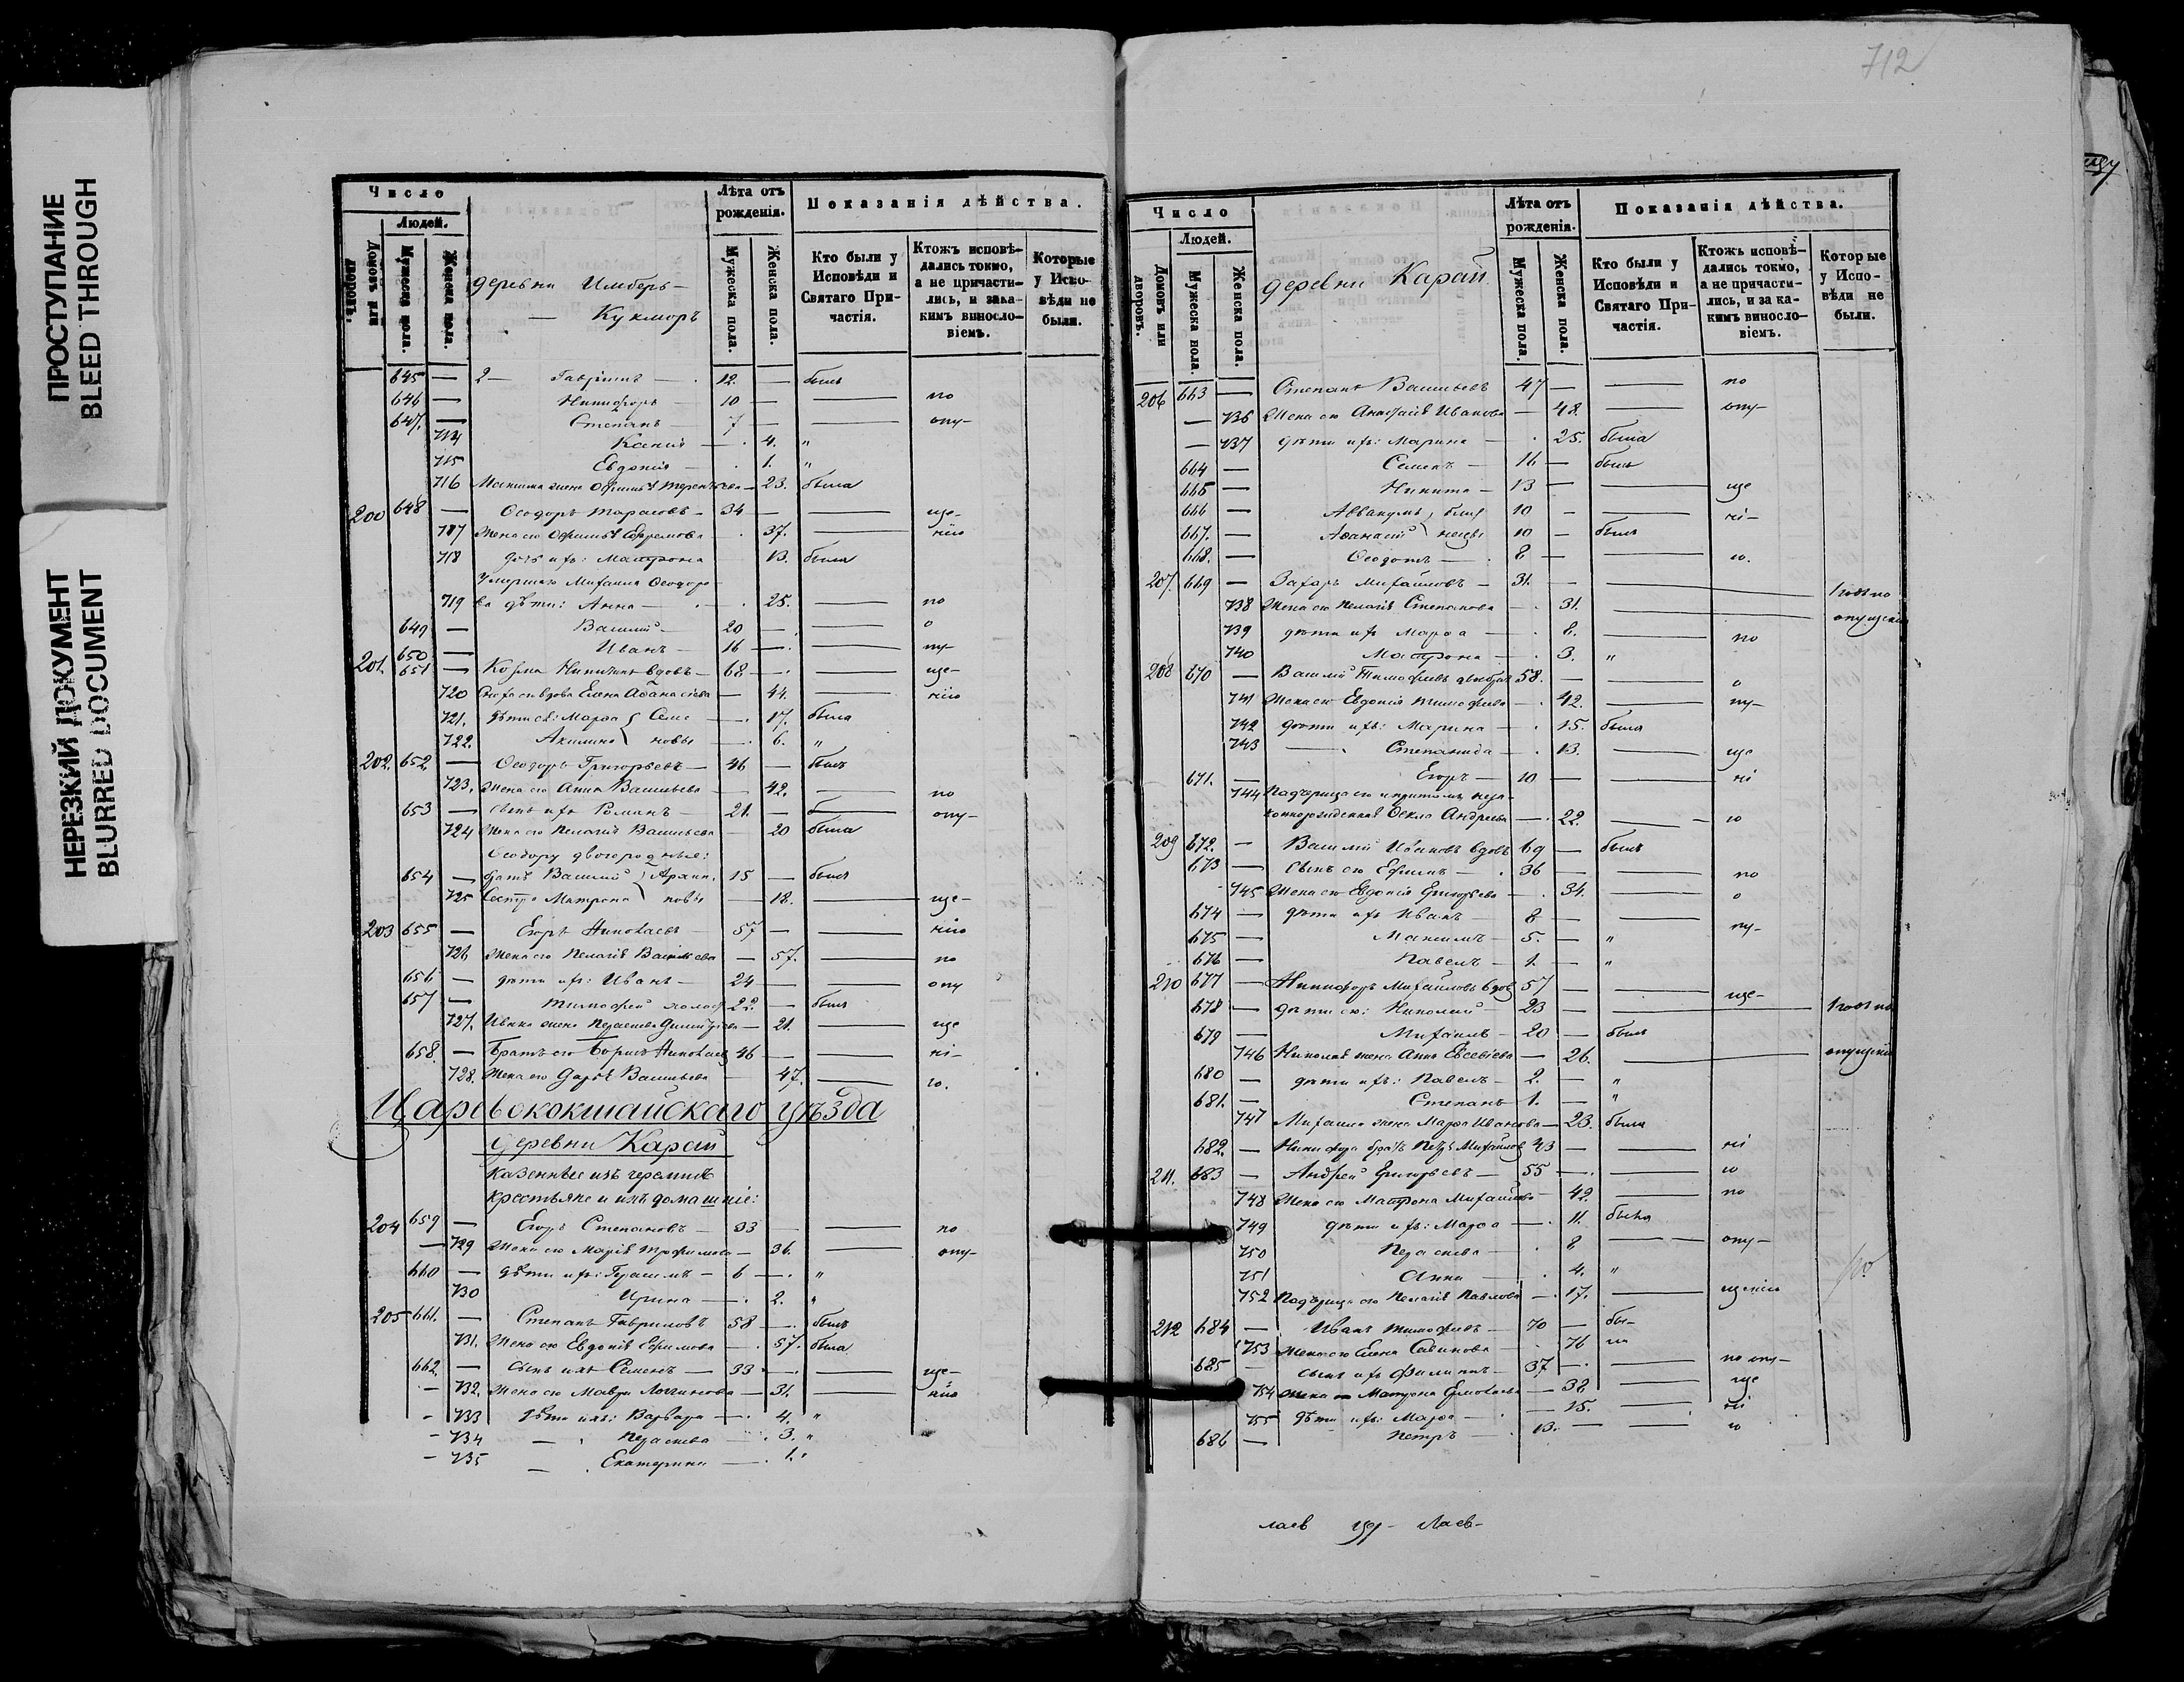 ПРОСТУПАНИЕ
BLEED THROUGH
НЕРЕЗКИЙ ДОКУМЕНТ
BLURRED DOCUMENT
Число
Людей.
Домовъ или дворовъ.
Мужеска пола.
Женска пола.
деревни Имберь-
— Кукморъ
Лѣта отъ рожденія.
Мужеска пола.
Женска пола.
Показанія дѣйства.
Кто были у Исповѣди и Святаго Причастія.
Ктожъ исповѣдались токмо, а не причастились, и за какимъ винословіемъ.
Которые у Исповѣди не были.
645 — 2 — Гавріилъ — 12. — былъ
646 — Никифоръ — 10 — — по
647. — Степанъ — 7 — — опу-
714 Ксенія — 4. "
715 Евдокія — 1. "
716 Максима жена Офимія Терентьева — 23. была
200 648 — Ѳеодоръ Тарасовъ — 34 — — ще-
717 Жена его Офимія Ефремова 37. — ніи
718 дочь ихъ: Матрона 13. была
Умершаго Михаила Ѳеодоро
719 ва дѣти: Анна — 25. — по
649 — Василій — 20 — — о
650 — Иванъ — 16 — — пу-
201. 651 — Козма Никитинъ вдовъ — 68 — — ще-
720 Сноха его вдова Елена Аѳанасіева — 44. — нію
721. дѣти ея: Марѳа } Семе — 17. была
722. Акилина } новы — 6. "
202. 652. — Ѳеодоръ Григорьевъ — 46 — былъ
723. Жена его Анна Васильева — 42. — по
653 — сынъ ихъ Романъ — 21. — опу-
724 Жена его Пелагія Васильева — 20 была
Ѳеодору двоюродные:
654 — братъ Василій 15 — былъ
725 Сестра Матрона — 18. — ще-
203 655 — Егоръ Николаевъ — 57 — — нію
726 Жена его Пелагія Васильева — 57. — по
656 — дѣти ихъ: Иванъ — 24 — — опу
657 — Тимофей холост 22. — былъ
727. Ивана жена Параскева Димитріева — 21. — ще
658. — Братъ его Борисъ Николаевъ 46 — — ні-
728. Жена его Дарья Васильева — 47. — ю.
Царевококшайскаго уѣзда
деревни Карай
Казенные изъ черемисъ
крестьяне и ихъ домашніе:
204 659 — Егоръ Степановъ — 33 — — по
— 729 Жена его Марія Трофимова — 36. — опу-
660 — дѣти ихъ: Герасимъ — 6 — "
730 Ирина — 2. "
205 661. — Степанъ Гавриловъ 58 — былъ
731. Жена его Евдокія Ефимова — 57. была
662. — сынъ ихъ Семенъ — 33 — — ще-
— 732. Жена его Мавра Логгинова — 31. — нію
- 733 дѣти ихъ: Варвара — 4. "
- 734 — Параскева — 3. "
- 735 — Екатерина — 1. "
712
Число
Людей.
Домовъ или дворовъ.
Мужеска пола.
Женска пола.
деревни Карай
Лѣта отъ рожденія.
Мужеска пола.
Женска пола.
Показанія дѣйства.
Кто были у Исповѣди и Святаго Причастія.
Ктожъ исповѣдались токмо, а не причастились, и за какимъ винословіемъ.
Которые у Исповѣди не были.
206 663 — Степанъ Васильевъ 47 — — по
— 736 Жена его Анастасія Иванова — 48. — опу-
— 737 дѣти ихъ: Марина — 25. была
664 — Семенъ — 16 — былъ
665 — Никита — 13 — — ще
666 — Аввакумъ } близ 10 — — ні-
667. — Аѳанасій } нецы 10 — былъ
668. — Ѳеодотъ — 8 — — ю.
207. 669 — Захаръ Михайловъ — 31. — — по
738 Жена его Пелагія Степанова — 31. — опущенію
739 дѣти ихъ Марѳа — 8. — по
740 Матрона — 3. "
208 670 — Василій Тимофеевъ 58. — — о
741 Жена его Евдокія Тимофеева — 42. — пу-
742 дѣти ихъ: Марина — 15. была
743 — Степанида — 13. — ще
671. — Егоръ — 10 — — ні
744 Падчерица его неза-
коннорожденная Ѳекла Андреева — 22. — ю
209 672. — Василій Ивановъ вдовъ 69 — былъ
673 — сынъ его Ефимъ — 36 — — по
745 Жена его Евдокія Григорьева — 34. — о
674 — дѣти ихъ Иванъ — 8 — — пу-
675 — Максимъ — 5. — "
676 — Павелъ — 1. — "
210 677 — Никифоръ Михайловъ вдов 57 — — ще-
678 — дѣти его: Николай — 23 — — по
679 — Михаилъ — 20 — былъ
746 Николая жена Анна Евсевіева — 26. — опущенію
680 — дѣти ихъ: Павелъ — 2. — "
681. — Степанъ 1. — "
747 Михаила жена Марѳа Иванова — 23. была
682. — Никифора братъ Петръ Михайловъ 43 — — ні
211. 683 — Андрей Григорьевъ — 55 — — ю
748 Жена его Матрона Михайлова — 42. — по
749 дѣти ихъ: Марѳа — 11. была
750 Параскева — 8 — опу-
751 Анна — 4. "
752 Падчерица его Пелагія Павлова — 17. — щенію
212 684 — Иванъ Тимофеевъ — 70 — бы-
753 Жена его Елена Савинова — 76 ли
685 — сынъ ихъ Филиппъ — 37 — — по опу-
754 Жена его Матрона Ермолаева — 38 — ще
755 дѣти ихъ: Марѳа — 15. — ні
686 — Петръ — 13. — — ю